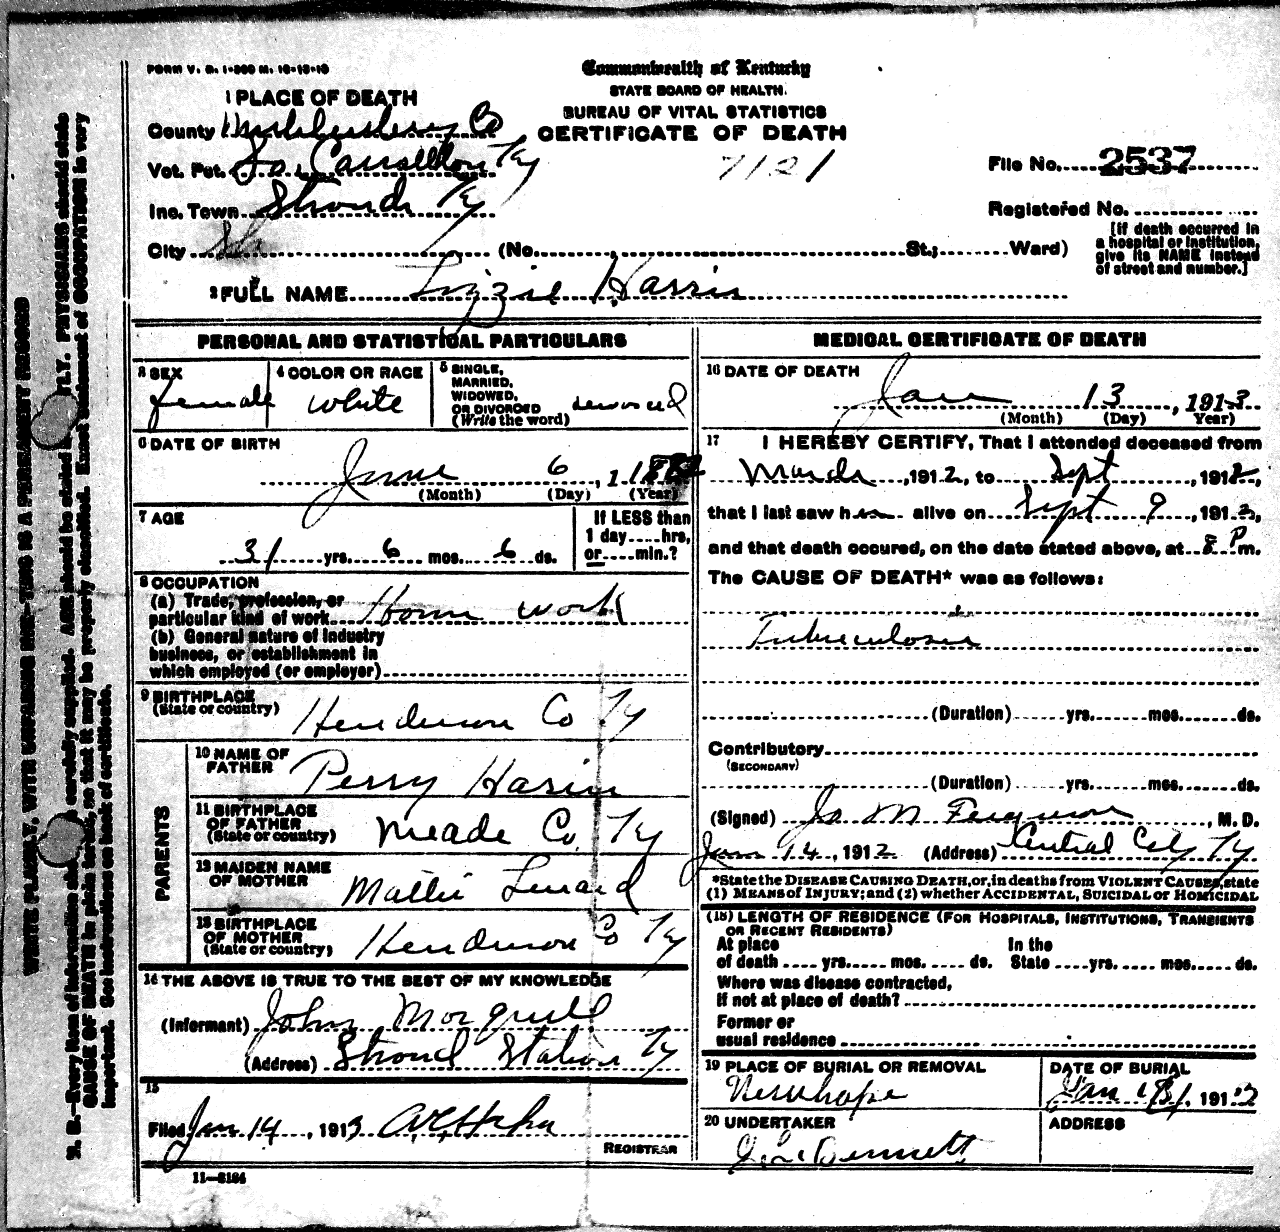 FORM V. S. 1-200 M. 10-12-10
Commonwealth of Kentucky
STATE BOARD OF HEALTH.
BUREAU OF VITAL STATISTICS
CERTIFICATE OF DEATH
7121
File No. 2537
Registered No.
[If death occurred in
a hospital or institution,
give its NAME instead
of street and number.]
1 PLACE OF DEATH
County Muhlenberg Co
Vot. Pct. So. Carrollton Ky
Inc. Town Stroud Ky
City (No. St.; Ward)
2 FULL NAME Lizzie Harris
PERSONAL AND STATISTICAL PARTICULARS
3 SEX
female
4 COLOR OR RACE
white
5 SINGLE,
MARRIED,
WIDOWED,
OR DIVORCED
(Write the word)
6 DATE OF BIRTH
June 6, 1
(Month) (Day) (Year)
7 AGE
31 yrs. 6 mos. 6 ds.
If LESS than
1 day....hrs,
or....min.?
8 OCCUPATION
(a) Trade, profession, or
particular kind of work House work
(b) General nature of industry
business, or establishment in
which employed (or employer)
9 BIRTHPLACE
(State or country)
Henderson Co Ky
PARENTS
10 NAME OF
FATHER
Perry Harris
11 BIRTHPLACE
OF FATHER
(State or country)
Meade Co. Ky
12 MAIDEN NAME
OF MOTHER
Mattie Lenard
13 BIRTHPLACE
OF MOTHER
(State or country)
Henderson Co Ky
14 THE ABOVE IS TRUE TO THE BEST OF MY KNOWLEDGE
(Informant) John
(Address) Stroud Station Ky
15
Filed Jan 14, 1913
REGISTRAR
11—3184
MEDICAL CERTIFICATE OF DEATH
16 DATE OF DEATH
Jan 13, 1913
(Month) (Day) (Year)
17 I HEREBY CERTIFY, That I attended deceased from
March, 1912, to Sept, 1912,
that I last saw her alive on Sept 9, 1912,
and that death occured, on the date stated above, at 8 P m.
The CAUSE OF DEATH* was as follows:
Tuberculosis
(Duration) yrs. mos. ds.
Contributory
(SECONDARY)
(Duration) yrs. mos. ds.
(Signed) Jo M Ferguson, M. D.
Jan 14, 1912 (Address) Central City Ky
*State the DISEASE CAUSING DEATH, or, in deaths from VIOLENT CAUSES, state
(1) MEANS of INJURY; and (2) whether ACCIDENTAL, SUICIDAL or HOMICIDAL
(18) LENGTH OF RESIDENCE (FOR HOSPITALS, INSTITUTIONS, TRANSIENTS
OR RECENT RESIDENTS)
At place
of death yrs. mos. ds.
In the
State yrs. mos. ds.
Where was disease contracted,
if not at place of death?
Former or
usual residence
19 PLACE OF BURIAL OR REMOVAL
Newhope
DATE OF BURIAL
Jan, 1912
20 UNDERTAKER
Dennett
ADDRESS
WRITE PLAINLY, WITH UNFADING INK—THIS IS A PERMANENT RECORD
N. B.—Every item of information should be carefully supplied. AGE should be stated EXACTLY. PHYSICIANS should state
CAUSE OF DEATH in plain terms, so that it may be properly classified. Exact statement of OCCUPATION is very
important. See instructions on back of certificate.